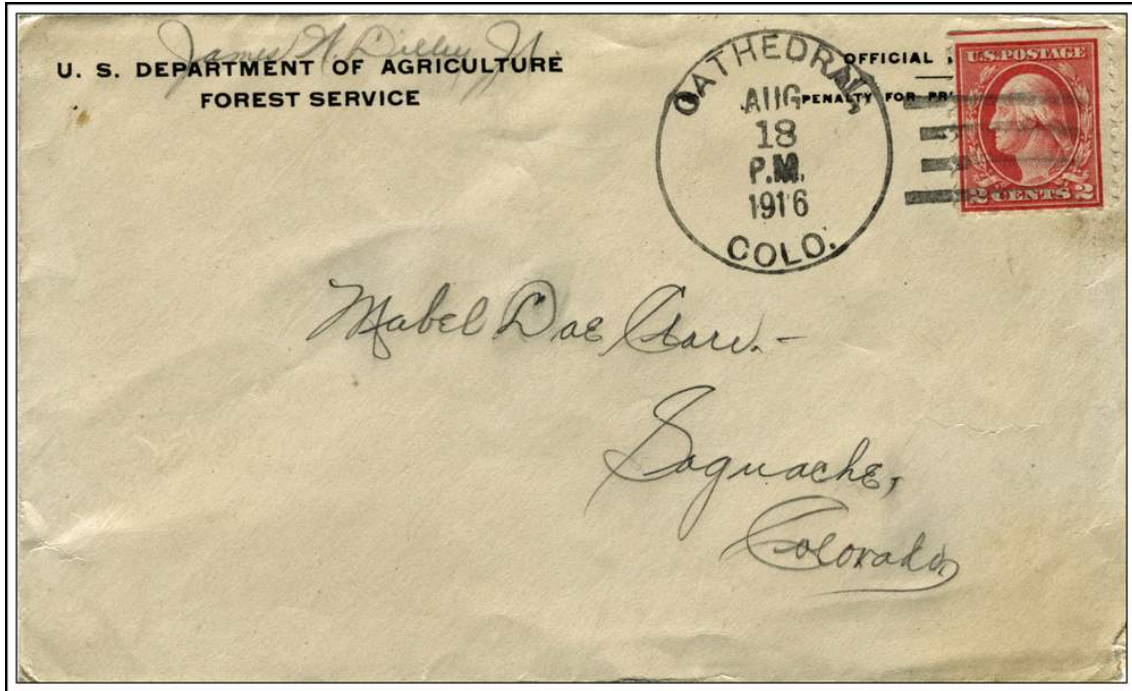 James
U. S. DEPARTMENT OF AGRICULTURE
FOREST SERVICE
OFFICIAL
PENALTY FOR PRI
CATHEDRAL,
AUG
18
P.M.
1916
COLO.
U.S. POSTAGE
2 CENTS 2
Mabel
Saguache,
Colorado